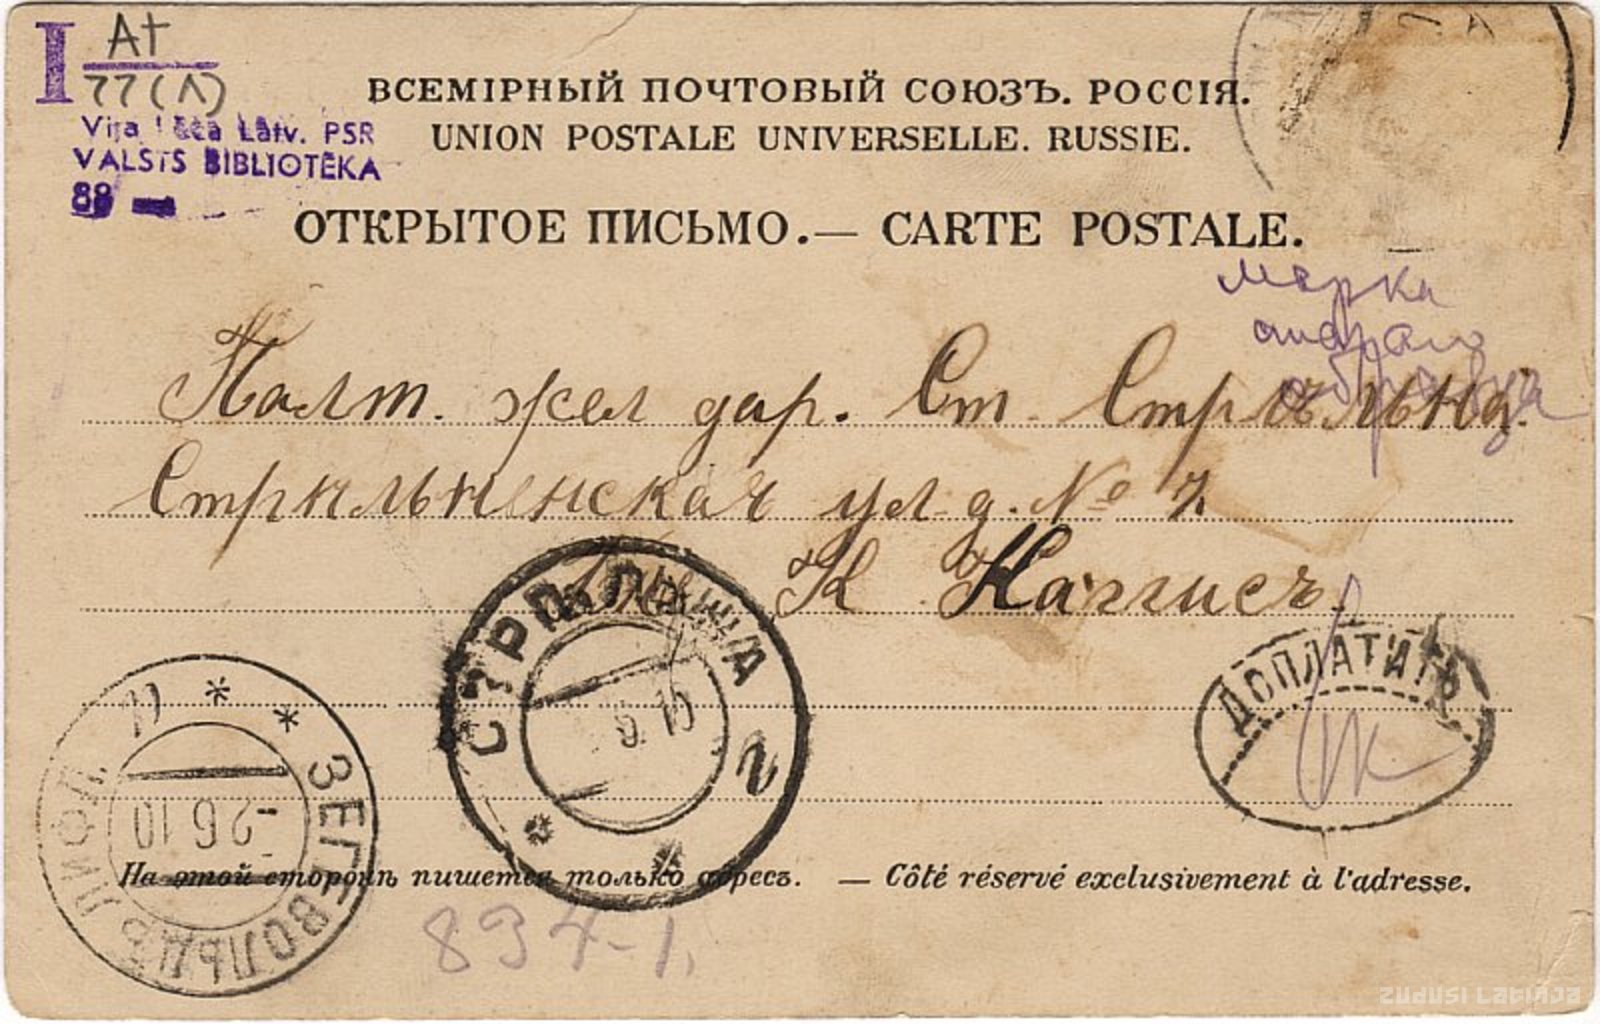 I At
77(Л)
Viļa Lāča Latv. PSR
VALSTS BIBLIOTĒKA
88 —
ВСЕМІРНЫЙ ПОЧТОВЫЙ СОЮЗЪ. РОССІЯ.
UNION POSTALE UNIVERSELLE. RUSSIE.
ОТКРЫТОЕ ПИСЬМО.— CARTE POSTALE.
марка
стараго
образца
Балт. жел дор. Ст. Стрѣльна.
Стрѣльненская ул. д. № 7
К
СТРѢЛЬНА
6 10
ДОПЛАТИТЬ
ЗЕГЕВОЛЬДЪ ЛИФЛ.
-2 6 10
На этой сторонѣ пишется только адресъ. — Côté réservé exclusivement à l'adresse.
894-1.
zudusi Latvija